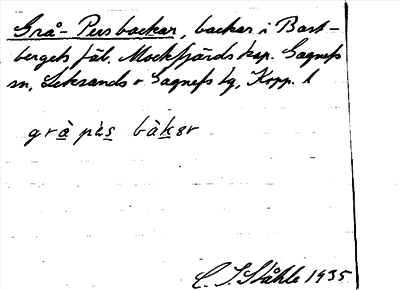 Grå-Pers backar, backar i Bast-
bergets fäb. Mockfjärds kap. Gagnefs
sn, Leksands o Gagnefs tg, Kopp. l
grà pæ̀s bàkər
C. I. Ståhle 1935